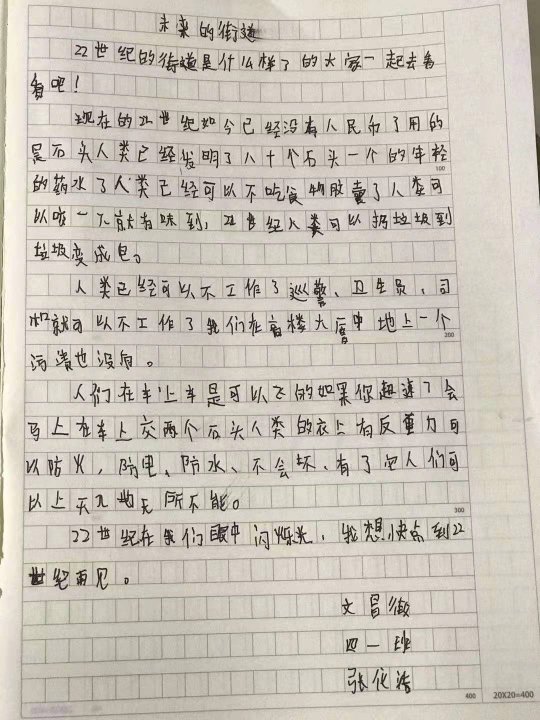 未来的街道
22世纪的街道是什么样了的大家一起去看
看吧！
现在的22世纪如今已经没有人民币了用的
是石头人类已经发明了八十个石头一个的年轻
的药水了人类已经可以不吃食物胶囊了人类可
以咬一下就有味到，22世纪人类可以扔垃圾到
垃圾变成包。
人类已经可以不工作了巡警、卫生员、司
机就可以不工作了我们在高楼大厦中地上一个
100
200
污渍也没有。
人们在车上车是可以飞的如果你超速了会
马上在车上交两个石头人类的衣上有反重力可
以防火，防电、防水、不会坏、有了它人们可
以上天入地无所不能。
300
22世纪在我们眼中闪烁光，我想快点到22
世纪再见。
文昌
四一班
张化浩
400
20X20=400